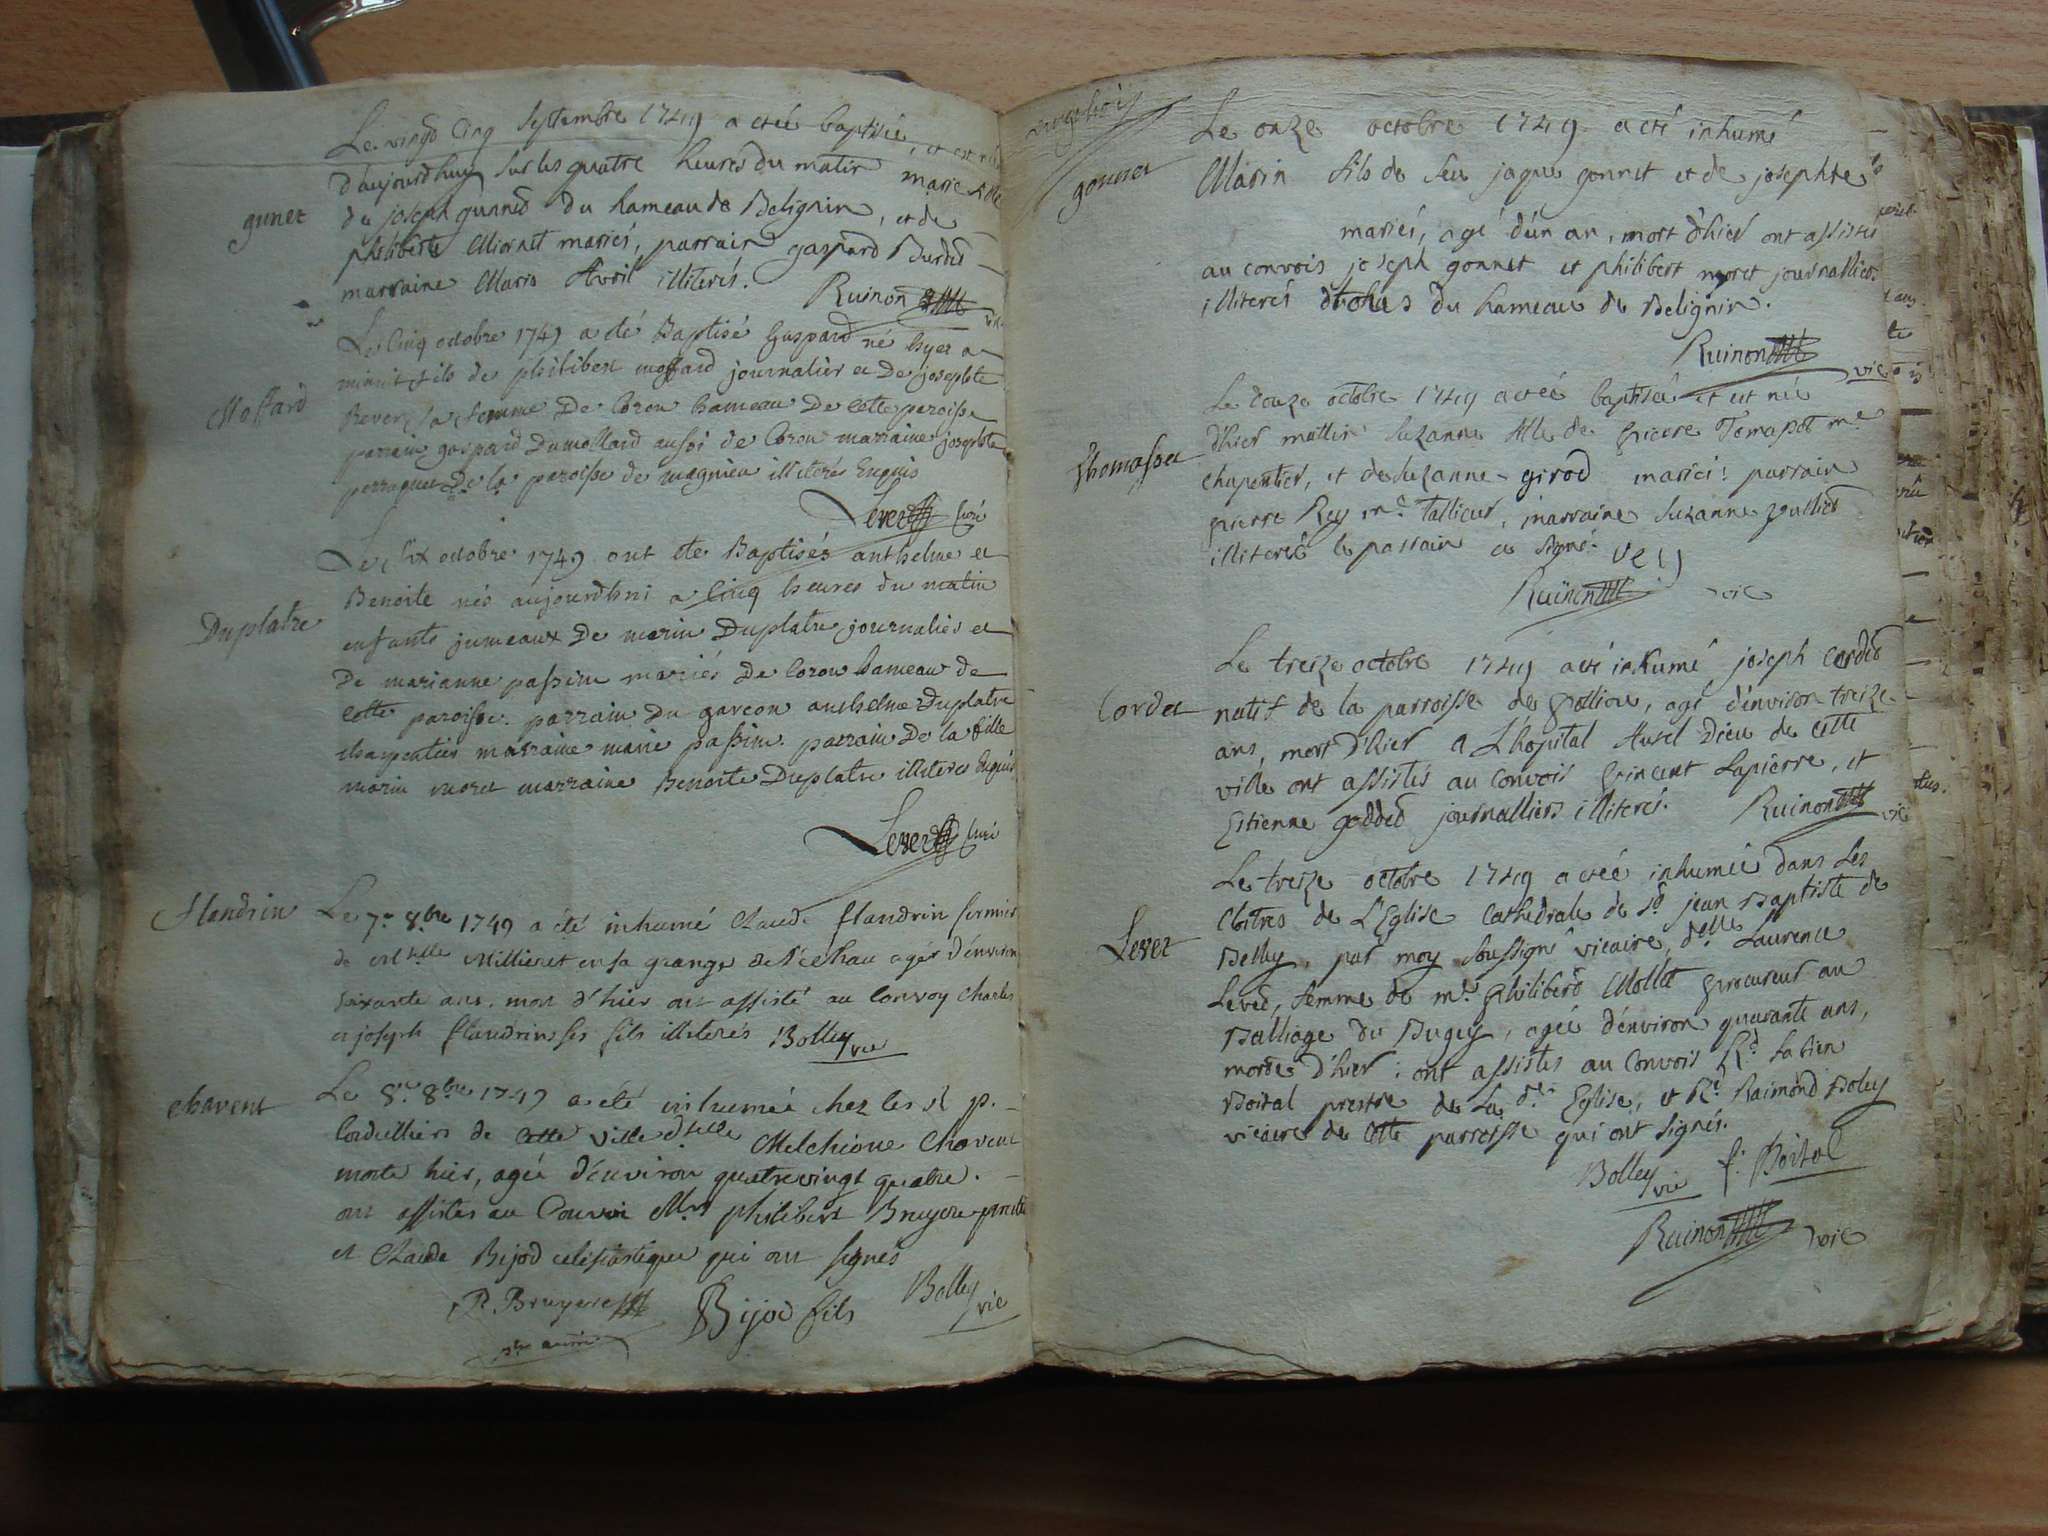 Le vingt Cinq Septembre 1749 a etée baptisée, et est née
d'aujourd'huy sur les quatre heures du matin marie fille
gunet
de joseph gunned du hameau de Belignin, et de
philiberte Miornet mariés, parrain gaspard Burdet
marraine Marie Avril illiterés.
Ruinon vic
Le Cinq octobre 1749 a eté Baptisé Gaspard né hyer a
minuit fils de philibert moffard journalier et De josephte
Moffard
Rever sa femme De Coron hameau De Cette paroisse
parrain gaspard Dumollard aussi de Coron marraine josephte
perraquet De la paroisse de magnieu illiterés Enquis
Lever Curé
Le six octobre 1749 ont ete Baptisés anthelme et
Benoite nés aujourdhui a Cinq heures du matin
Duplatre
enfants jumeaux De marin Duplatre journalier et
De marianne passin mariés De Coron hameau de
Cette paroisse. parrain Du garcon anthelme Duplatre
charpentier marraine marie passin. parrain De la fille
marin moret marraine Benoite Duplatre illiteres Enquis
Lever Curé
flandrin
Le 7e 8bre 1749 a été inhumé Claude flandrin fermier
de Mselle Millieret en sa grange de agé d'environ
soixante ans. mort d'hier ont assisté au Convoy Charles
et joseph flandrin ses fils illiterés Bolley vic
chavent
Le 8e 8bre 1749 a été inhumée chez les R p.
Cordeliers de Cette ville dselle Melchione Chavent
morte hier, agée d'environ quatrevingt quatre.
ont assistes au Convoi Mrs philibert Bruyere prestre
et Claude Bijod eclesiastique qui ont signés
P. Bruyere
Bijod fils
Bolley vic
gonnet
Le onze octobre 1749 a eté inhumé
Marin fils de feu jaque gonnet et de josephte
mariés, agé d'un an, mort d'hier ont assistés
au convois joseph gonnet et philibert moret journalliers
illiterés du hameau de Belignin.
Ruinon vic
Le douze octobre 1749 a etée baptisée et est née
d'hier mattin Suzanne fille de pierre Tomasset me
thomasset
chapentier, et de Suzanne girod mariés: parrain
pierre Rey me Tallieur, marraine Suzanne
illiterée le parrain a signé. rey
Ruinon vic
Le treize octobre 1749 a eté inhumé joseph Cordet
Cordet
natif de la parroisse de pollieu, agé d'environ treize
ans, mort d'hier a L'hopital hutel Dieu de cette
ville ont assistés au Convois vincent Lapierre, et
Estienne goddet journalliers illiterés. Ruinon vic
Le treize octobre 1749 a etée inhumée dans les
Cloitres de L'Eglise Cathedrale de St jean Baptiste de
Lever
Belley, par moy soussigné vicaire, delle Laurence
Lever, femme de me philibert Mollet procureur au
Balliage du Bugey, agée d'environ quarante ans,
morte d'hier: ont assistés au Convois Rd fabien
Boital prestre de La de Eglise, et Rd Raimond Boley
vicaire de cette parroisse qui ont signés.
Bolley vic f. Boital
Ruinon vic